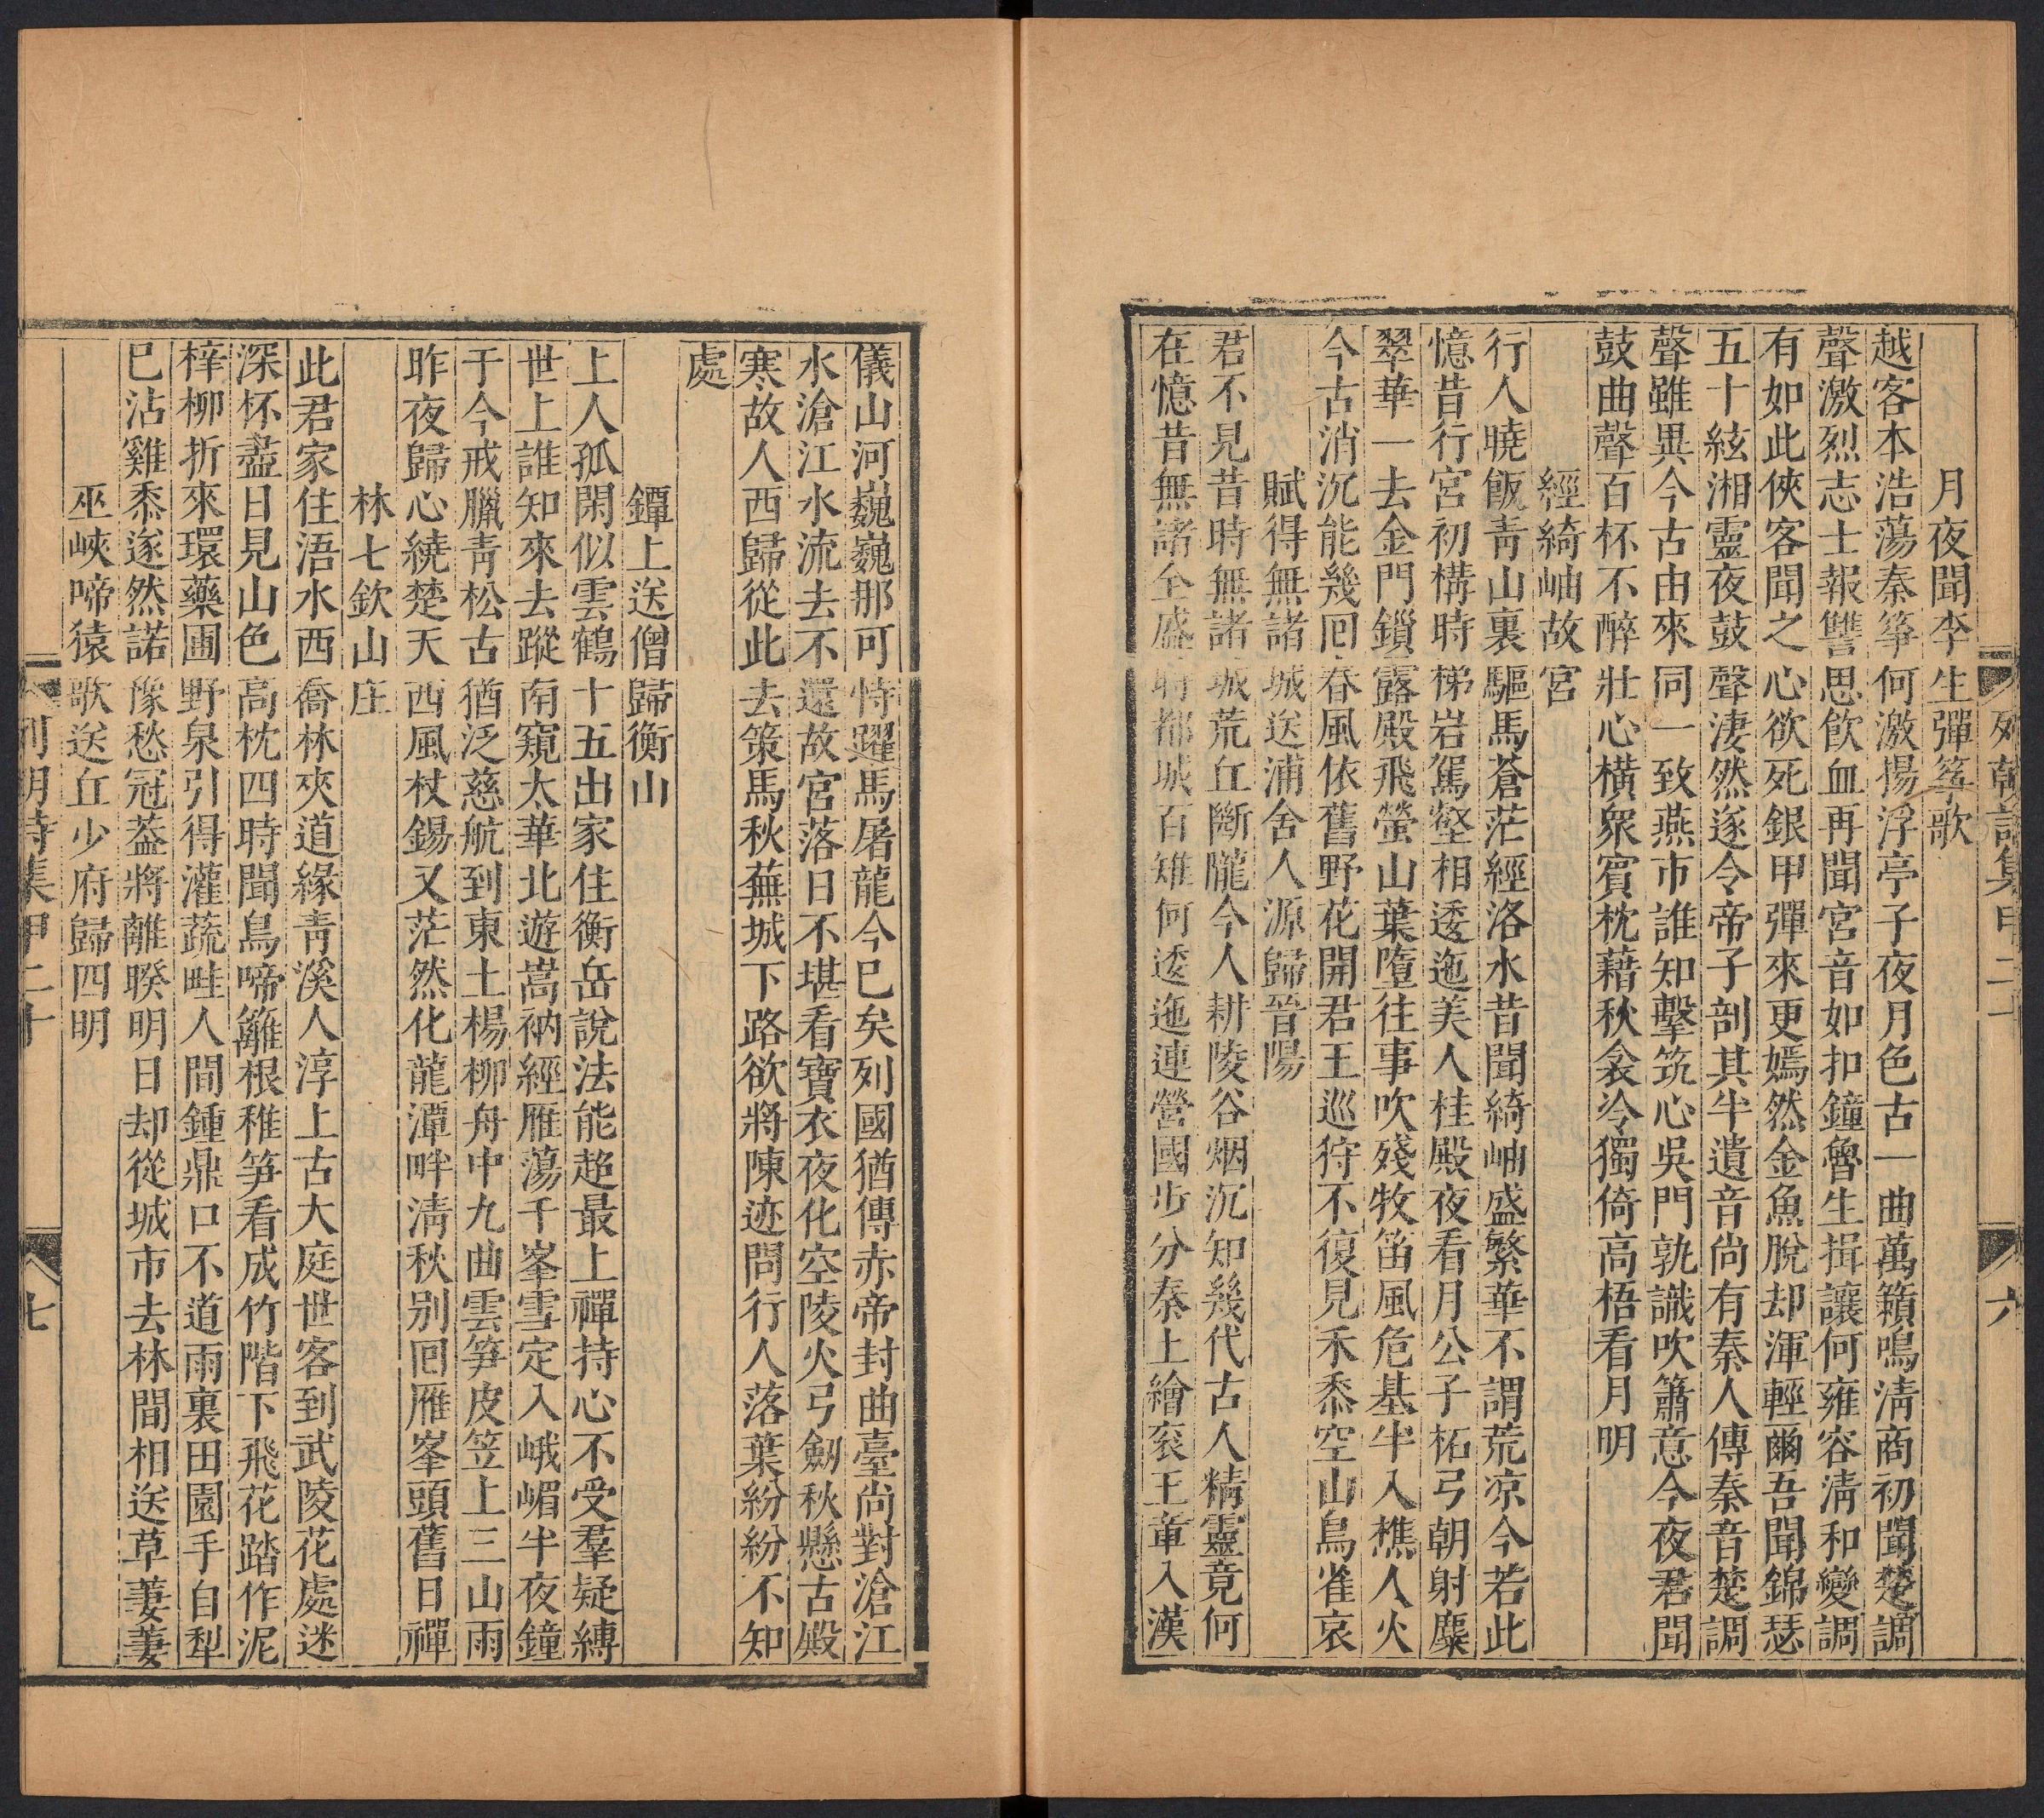 列朝詩集甲二十
六
月夜聞李生彈箏歌
越客本浩蕩秦箏何激揚浮亭子夜月色古一曲萬籟鳴淸商初聞楚調
聲激烈志士報讐思飮血再聞宮音如扣鐘魯生揖讓何雍容淸和變調
有如此俠客聞之心欲死銀甲彈來更嫣然金魚脫却渾輕爾吾聞錦瑟
五十絃湘靈夜鼓聲淒然遂令帝子剖其半遺音尚有秦人傳秦音楚調
聲雖異今古由來同一致燕市誰知擊筑心吳門孰識吹簫意今夜君聞
鼓曲聲百杯不醉壯心橫衆賓枕藉秋衾冷獨倚高梧看月明
經綺岫故宮
行人曉飯靑山裏驅馬蒼茫經洛水昔聞綺岫盛繁華不謂荒凉今若此
憶昔行宮初構時梯岩駕壑相逶迤美人桂殿夜看月公子柘弓朝射麋
翠華一去金門鎖露殿飛螢山葉墮往事吹殘牧笛風危基半入樵人火
今古消沉能幾囘春風依舊野花開君王巡狩不復見禾黍空山鳥雀哀
賦得無諸城送浦舍人源歸晉陽
君不見昔時無諸城荒丘斷隴今人耕陵谷烟沉知幾代古人精靈竟何
在憶昔無諸全盛時都城百雉何逶迤連營國步分秦上繪衮王章入漢
儀山河巍巍那可恃躍馬屠龍今已矣列國猶傳赤帝封曲臺尚對滄江
水滄江水流去不還故宮落日不堪看寶衣夜化空陵火弓劒秋懸古殿
寒故人西歸從此去策馬秋蕪城下路欲將陳迹問行人落葉紛紛不知
處
鐔上送僧歸衡山
上人孤閑似雲鶴十五出家住衡岳說法能超最上禪持心不受羣疑縛
世上誰知來去蹤南窺太華北遊嵩衲經雁蕩千峯雪定入峨嵋半夜鐘
于今戒臘靑松古猶泛慈航到東土楊柳舟中九曲雲笋皮笠上三山雨
昨夜歸心繞楚天西風杖錫又茫然化龍潭畔淸秋別囘雁峯頭舊日禪
林七欽山庄
此君家住浯水西喬林夾道緣靑溪人淳上古大庭世客到武陵花處迷
深杯盡日見山色高枕四時聞鳥啼籬根稚笋看成竹階下飛花踏作泥
梓柳折來環藥圃野泉引得灌蔬畦人間鍾鼎口不道雨裏田園手自犁
已沾雞黍遂然諾豫愁冠葢將離睽明日却從城市去林間相送草萋萋
巫峽啼猿歌送丘少府歸四明
列朝詩集甲二十
七